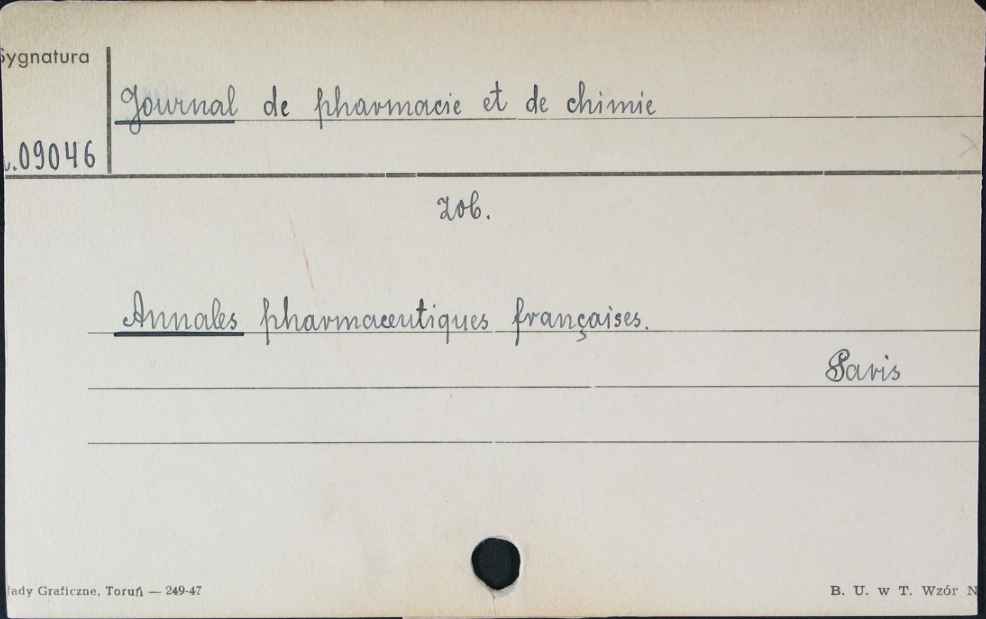 Sygnatura
Journal de pharmacie et de chimie
.09046
zob.
Annales pharmaceutiques françaises.
Paris
łady Graficzne, Toruń — 249-47
B. U. w T. Wzór N